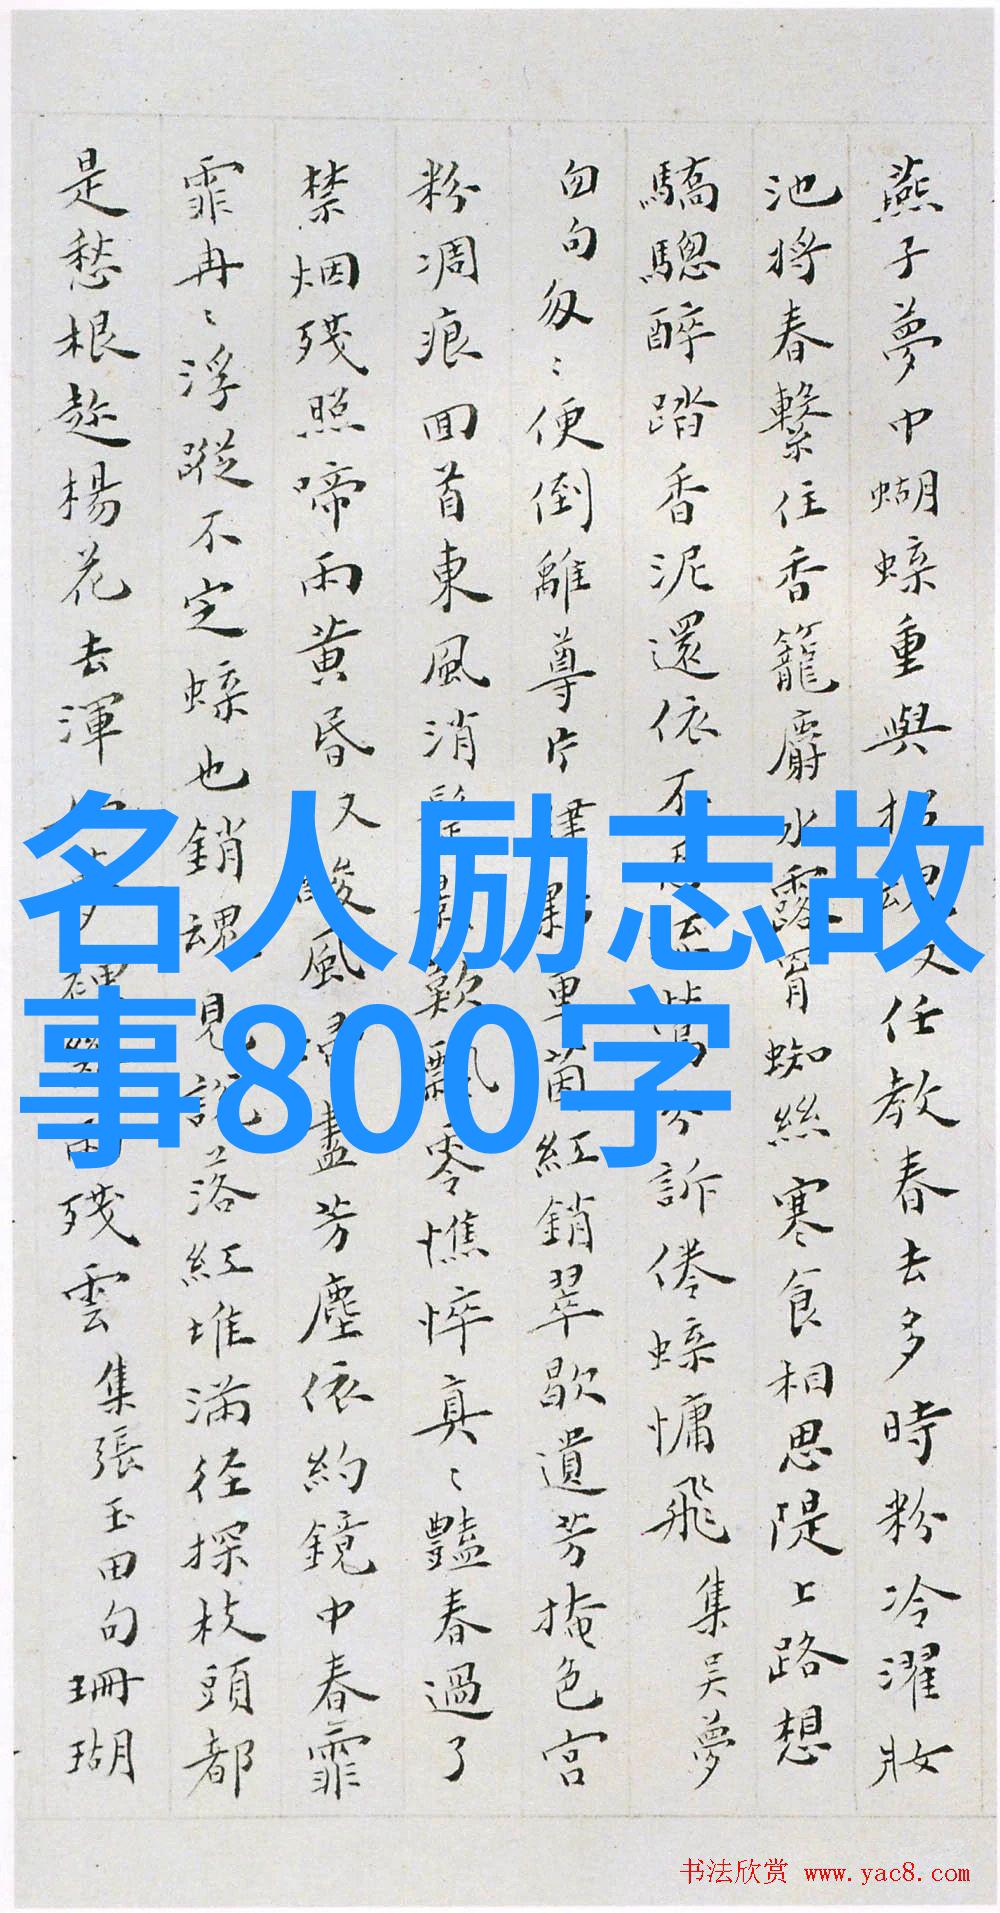 燕子夢中蝴蜨重與又任教春去多時粉冷濯妝
池將春繫住香籠麝水露罥蜘絲寒食相思隄上路想
驕驄醉踏香泥還依不訴倦蜨慵飛 集吳夢
句匆〻便倒離尊片重茵紅銷翠歇遺芳掩色宮
粉凋痕回首東風消鬢影歎飄零憔悴真〻豔春過了
禁烟殘照啼雨黄昏又酸風掃盡芳塵依約鏡中春霏
霏冉〻浮蹤不定蜨也銷魂見說落紅堆滿徑探枝頭都
是愁根趁楊花去渾殘雲 集張玉田句 珊瑚
名人励志故
事800字
书法欣赏 www.yac8.com